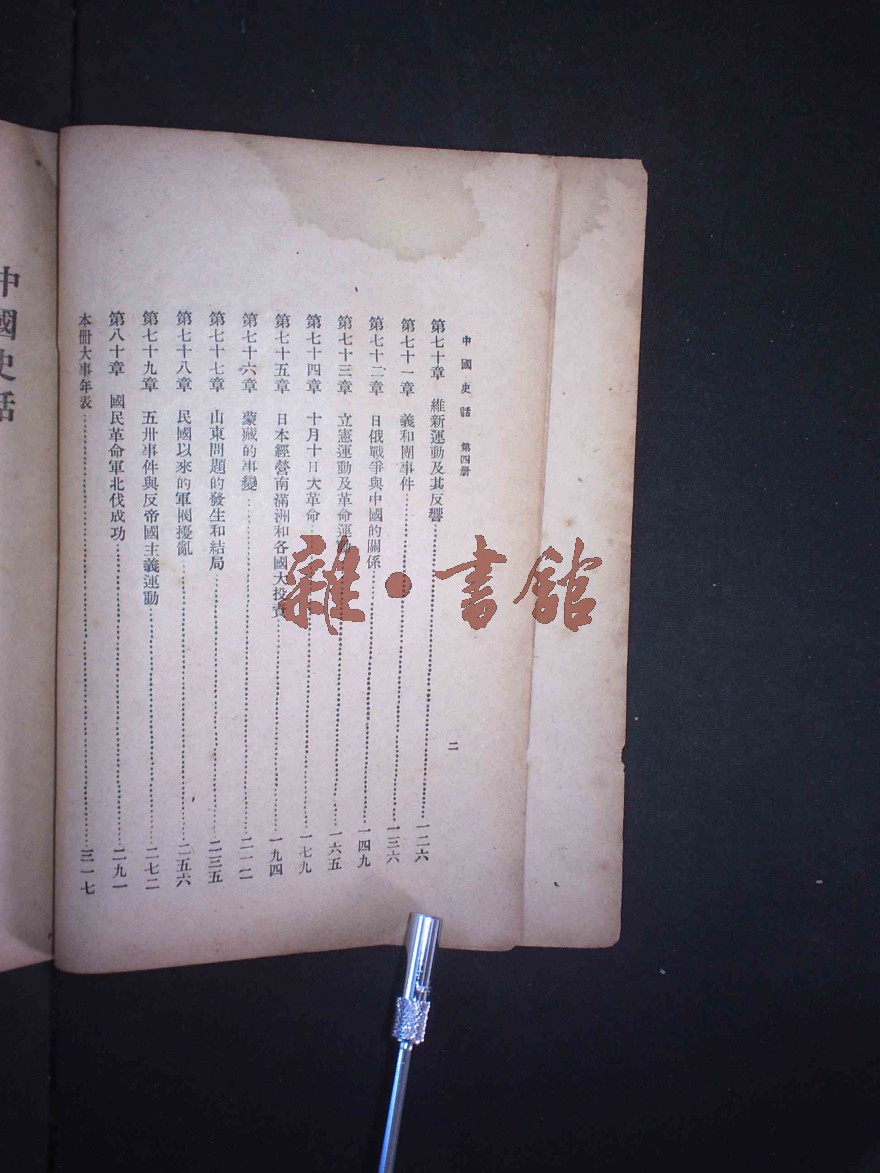 中國史話 第四册
二
第七十章 維新運動及其反響……一二六
第七十一章 義和團事件……一三六
第七十二章 日俄戰爭與中國的關係……一四九
第七十三章 立憲運動及革命運動……一六五
第七十四章 十月十日大革命……一七九
第七十五章 日本經營南滿洲和各國大投資……一九四
第七十六章 蒙藏的事變……二一二
第七十七章 山東問題的發生和結局……二三五
第七十八章 民國以來的軍閥擾亂……二五六
第七十九章 五卅事件與反帝國主義運動……二七二
第八十章 國民革命軍北伐成功……二九一
本冊大事年表……三一七
中國史話
雜·書館